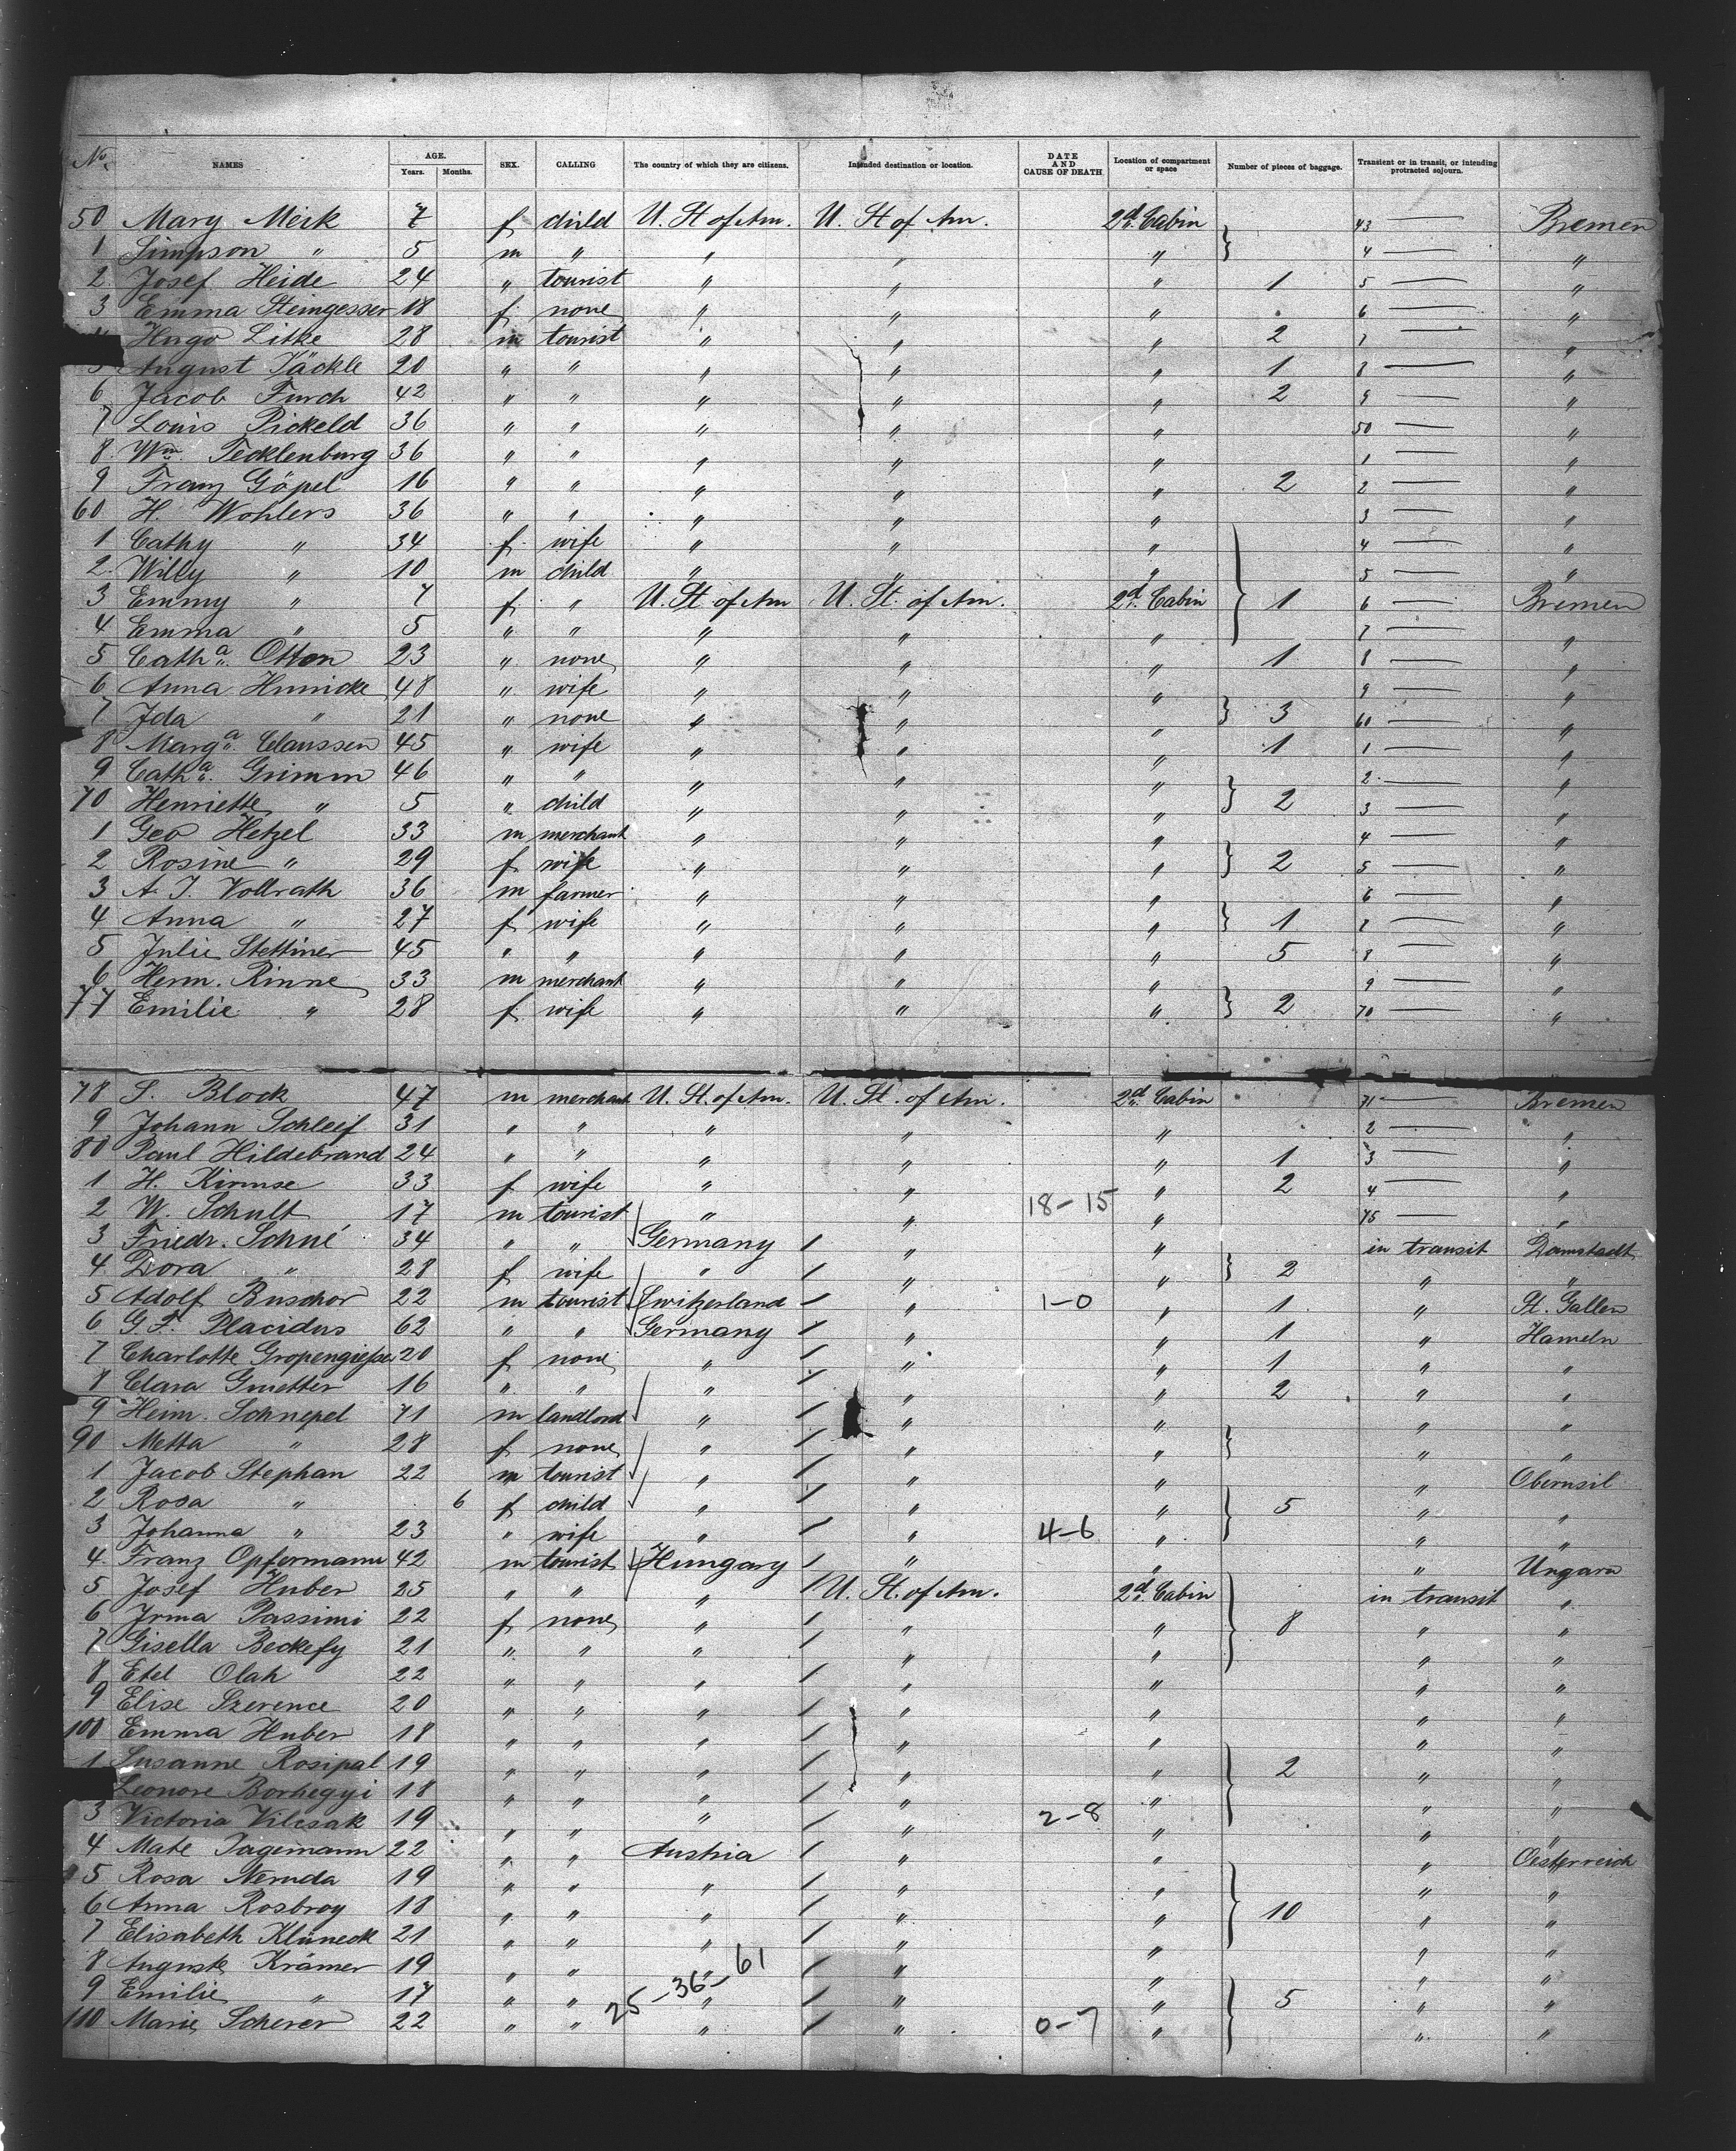 No. NAMES AGE. Years. Months. SEX. CALLING The country of which they are citizens. Intended destination or location. DATE AND CAUSE OF DEATH. Location of compartment or space Number of pieces of baggage. Transient or in transit, or intending protracted sojourn.
50 Mary Meik 7 f child U. St of Am. U. St of Am. 2d. Cabin 43 — Bremen
1 Simpson " 5 m " " " " } 4 — "
2. Josef Heide 24 " tourist " " " 1 5 — "
3 Emma Steingesser 18 f none " " " 6 — "
Hugo Litke 28 m tourist " " " 2 7 — "
5 August Jäckle 20 " " " " " 1 8 — "
6 Jacob Furch 42 " " " " " 2 9 — "
7 Louis Pickeld 36 " " " " " 50 — "
8. Wm. Tecklenburg 36 " " " " " 1 — "
9 Franz Göpel 16 " " " " " 2 2 — "
60 H. Wohlers 36 " " " " " 3 — "
1 Cathy " 34 f wife " " " 4 — "
2. Willy " 10 m child " " " 5 — "
3 Emmy " 7 f " U. St of Am U. St. of Am. 2d. Cabin } 1 6 — Bremen
4 Emma " 5 " " " " " 7 — "
5 Catha. Otton 23 " none " " " 1 8 — "
6 Anna Hunicke 48 " wife " " " 9 — "
7 Ida " 21 " none " " " } 3 60 — "
8 Marga. Claussen 45 " wife " " " 1 1 — "
9 Catha. Grimm 46 " " " " " 2. — "
70 Henriette " 5 " child " " " } 2 3 — "
1 Geo Hetzel 33 m merchant " " " 4 — "
2 Rosine " 29 f wife " " " } 2 5 — "
3 A J. Vollrath 36 m farmer " " " 6 — "
4 Anna " 27 f wife " " " } 1 7 — "
5 Julie Stettiner 45 " " " " " 5 8 — "
6 Herm. Rinne 33 m merchant " " " 9 — "
77 Emilie " 28 f wife " " " } 2 70 — "
78 S. Block 47 m merchant U. St. of Am. U. St. of Am. 2d. Cabin 71 — Bremen
9 Johann Schleif 31 " " " " " 2 — "
80 Paul Hildebrand 24 " " " " " 1 3 — "
1 H. Kirmse 33 f wife " " " 2 4 — "
2 W. Schult 17 m tourist " " 18-15 " 75 — "
3 Friedr. Schué 34 " " Germany " " in transit Damstadt
4. Dora " 28 f wife " " " } 2 " "
5 Adolf Buschor 22 m tourist Switzerland " 1-0 " 1 " St. Gallen
6 G. F. Placidus 62 " " Germany " " 1 " Hameln
7 Charlotte Gropengiesser 20 f none " " " 1 " "
8 Clara Gruetter 16 " " " " " 2 " "
9 Heinr. Schnepel 71 m landlord " " " " "
90 Metta " 28 f none " " " } " "
1 Jacob Stephan 22 m tourist " " " " Obernsil
2 Rosa " 6 f child " " " } 5 " "
3 Johanna " 23 " wife " " 4-6 " " "
4. Franz Opfermann 42 m tourist Hungary " " " Ungarn
5 Josef Huber 25 " " " U. St. of Am. 2d. Cabin in transit "
6 Irma Passimi 22 f none " " " } 8 " "
7 Gisella Beckefy 21 " " " " " " "
8 Etel Olah 22 " " " " " " "
9 Elise Szerence 20 " " " " " " "
100 Emma Huber 18 " " " " " " "
1 Susanne Rosipal 19 " " " " " } 2 " "
Leonore Borhegyi 18 " " " " " " "
3 Victoria Vilcsak 19 " " " " 2-8 " " "
4 Mate Dagemann 22 " " Austria " " " Oesterreich
5 Rosa Neruda 19 " " " " " " "
6 Anna Rosbroy 18 " " " " " } 10 " "
7 Elisabeth Kluneck 21 " " " " " " "
8 Auguste Krämer 19 " " " " " " "
9 Emilie " 17 " " 25-36-61 " " } 5 " "
110 Marie Scherer 22 " " " " 0-7 " " "